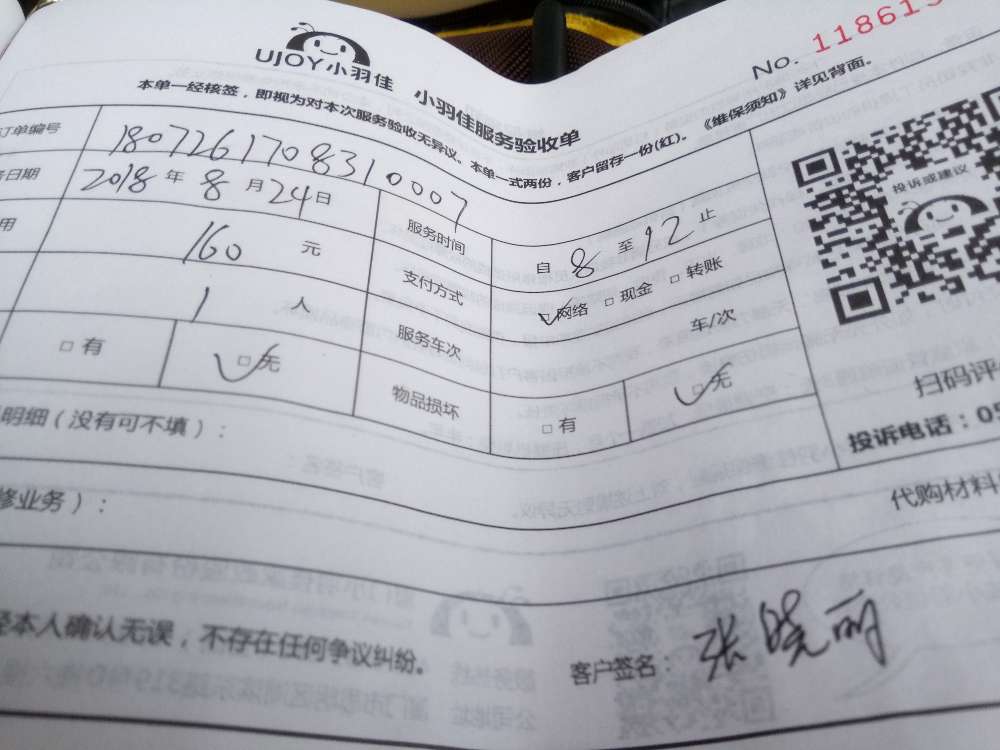 UJOY小羽佳 小羽佳服务验收单
No. 118615
本单一经核签，即视为对本次服务验收无异议。本单一式两份，客户留存一份(红)。《维保须知》详见背面。
订单编号 1807261708310007
务日期 2018年8月24日 服务时间 自8至12止
用 160元 支付方式 □网络 □现金 □转账
1人 服务车次 车/次
□有 □无 物品损坏 □有 □无
投诉或建议
扫码评
投诉电话：05
明细（没有可不填）：
修业务）： 代购材料
经本人确认无误，不存在任何争议纠纷。 客户签名：张晓丽